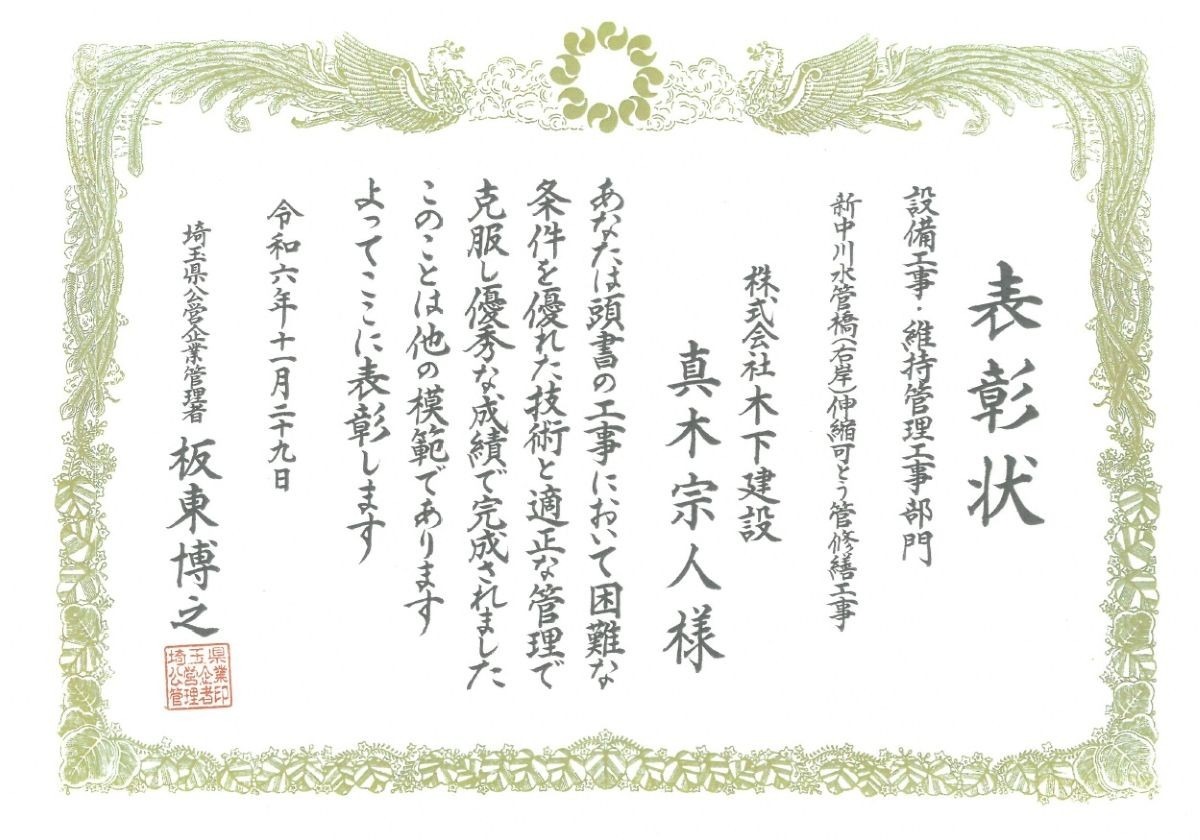 表彰状
設備工事・維持管理工事部門
新中川水管橋(右岸)伸縮可とう管修繕工事
株式会社木下建設
真木宗人様
あなたは頭書の工事において困難な
条件を優れた技術と適正な管理で
克服し優秀な成績で完成されました
このことは他の模範であります
よってここに表彰します
令和六年十一月二十九日
埼玉県公営企業管理者 板東博之
埼玉県公営企業管理者印